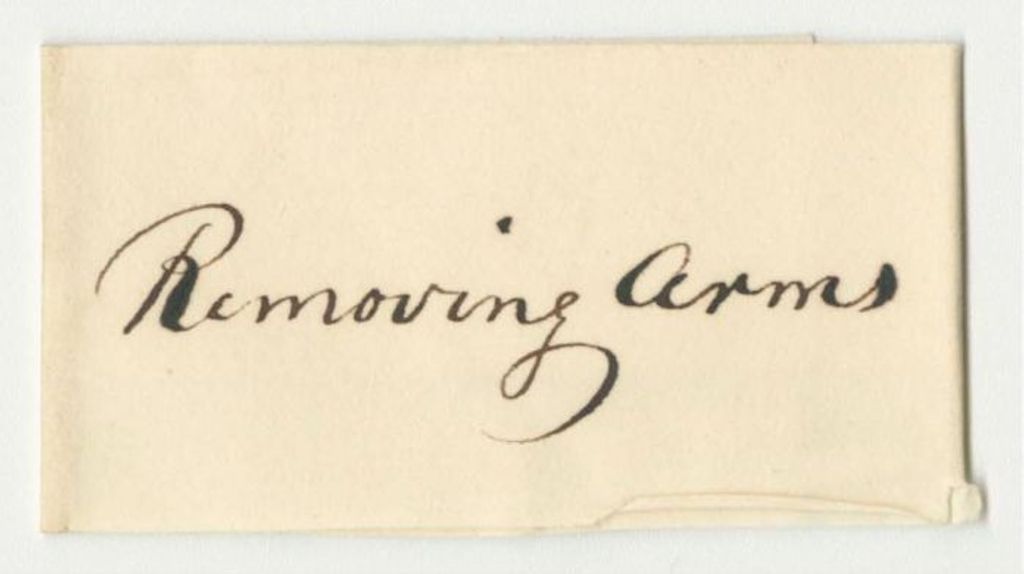 Removing Arms